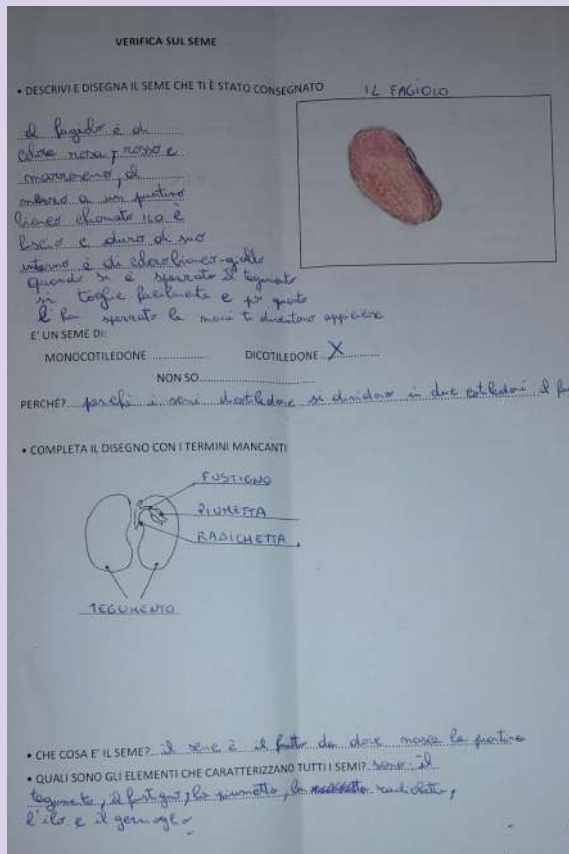 VERIFICA SUL SEME
• DESCRIVI E DISEGNA IL SEME CHE TI È STATO CONSEGNATO
IL FAGIOLO
il fagiolo è di
colore rosa, rosso e
marroncino, al
a un puntino
bianco chiamato ILO è
liscio e duro al suo
interno è di colore bianco-giallo
quando si è sperrato il tegumeto
si toglie facilmente e poi quanto
l'hai sperrato le mani ti diventano appicicose
E' UN SEME DI:
MONOCOTILEDONE ............... DICOTILEDONE X
NON SO
PERCHÉ? perché i semi dicotiledone si dividono in due cotiledoni il
• COMPLETA IL DISEGNO CON I TERMINI MANCANTI
FUSTIGNO
PIUMETTA
RADICHETTA
TEGUMENTO
• CHE COSA E' IL SEME? il seme è il frutto da dove nasce la piantina
• QUALI SONO GLI ELEMENTI CHE CARATTERIZZANO TUTTI I SEMI? sono il
tegumento, il fustigno, la piumetta, la radichetta,
l'ilo e il germoglio